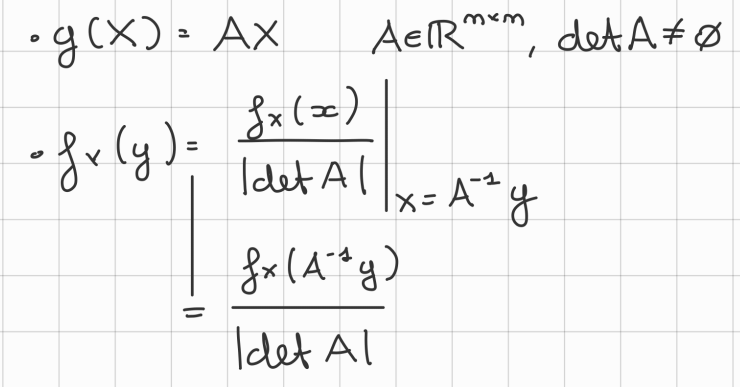 • g(X) = AX A∈ℝ^{m×m}, det A ≠ ∅
• f_Y(y) = f_X(x) / |det A| |_{x = A^{-1} y}
= f_X(A^{-1} y) / |det A|